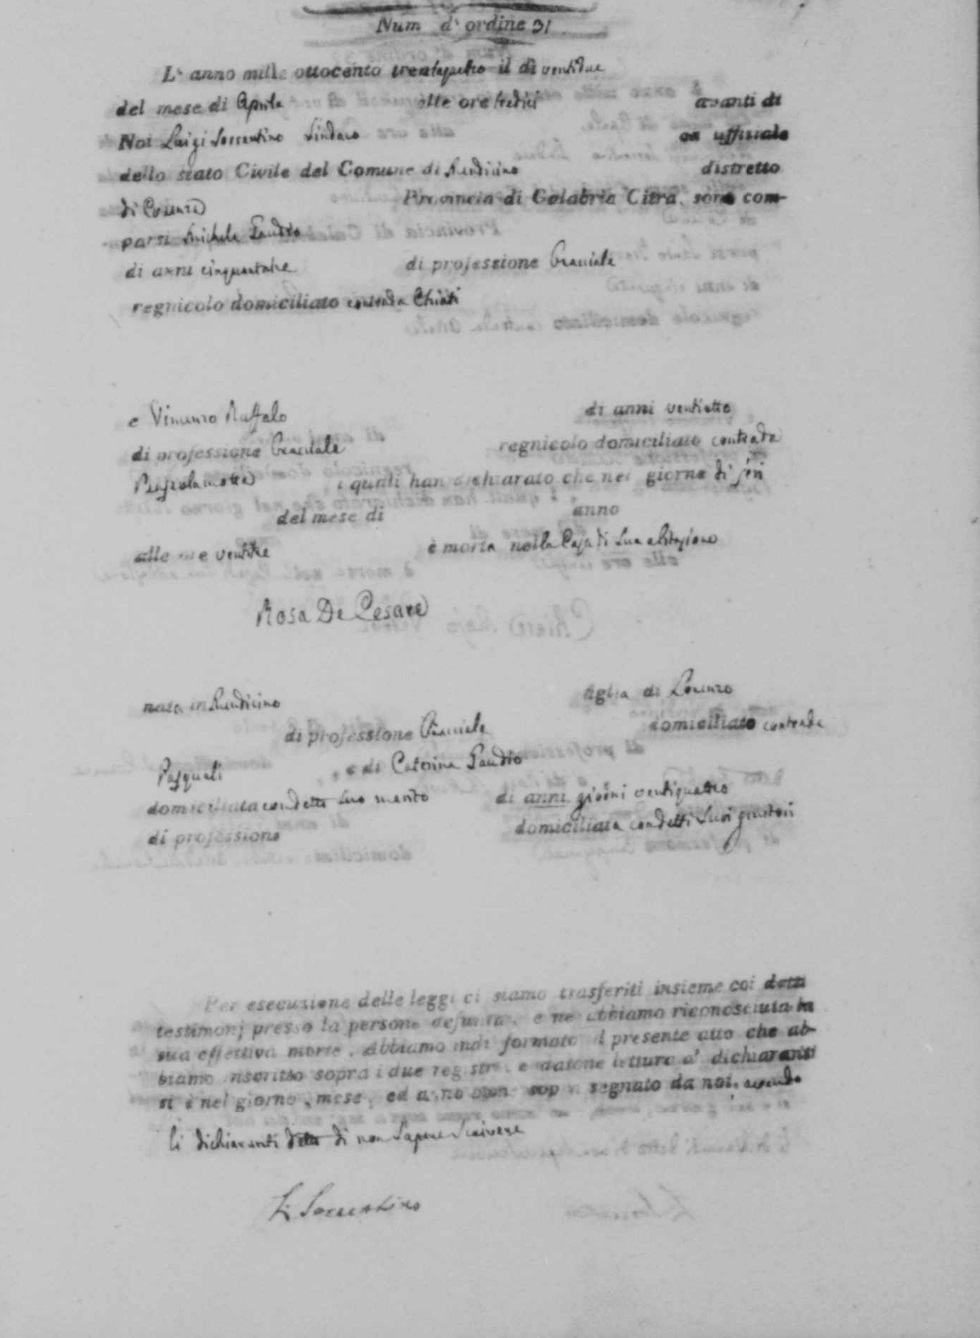 Num d'ordine 31
L'anno mille ottocento trentaquattro il dì ventidue
del mese di Aprile alle ore tredici avanti di
Noi Luigi Sorrentino Sindaco ed uffiziale
dello stato Civile del Comune di distretto
di Cosenza Provincia di Calabria Citra, sono com-
parsi Michele Gaudio
di anni cinquantatre di professione Bracciale
regnicolo domiciliato contrada Chiati
e Vincenzo Ruffolo di anni ventiotto
di professione Bracciale regnicolo domiciliato contrada
i quali han dichiarato che nel giorno di jeri
del mese di anno
alle ore ventitre è morta nella Casa di Sua abitazione
Rosa De Cesare
nata in figlia di Lorenzo
di professione Bracciale domiciliato contrada
Pasquali e di Caterina Gaudio
domiciliata con detto suo marito di anni giorni ventiquattro
di professione domiciliata con detti Suoi genitori
Per esecuzione delle leggi ci siamo trasferiti insieme coi detti
testimonj presso la persona defunta, e ne abbiamo riconosciuta la
sua effettiva morte. Abbiamo indi formato il presente atto che ab-
biamo inscritto sopra i due registri, e datone lettura a' dichiaranti
si è nel giorno, mese, ed anno come sopra segnato da noi, avendo
li dichiaranti detto di non Sapere Scrivere
L Sorrentino